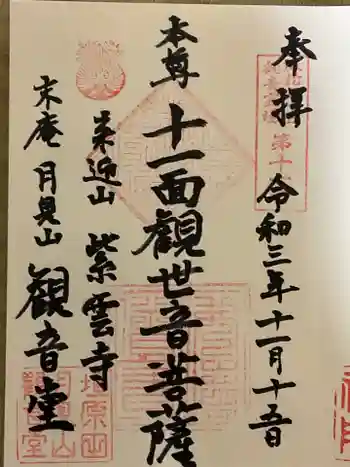 奉拝
令和三年十一月十五日
本尊
十一面観世音菩薩
来迎山 紫雲寺
末庵 月見山 観音堂